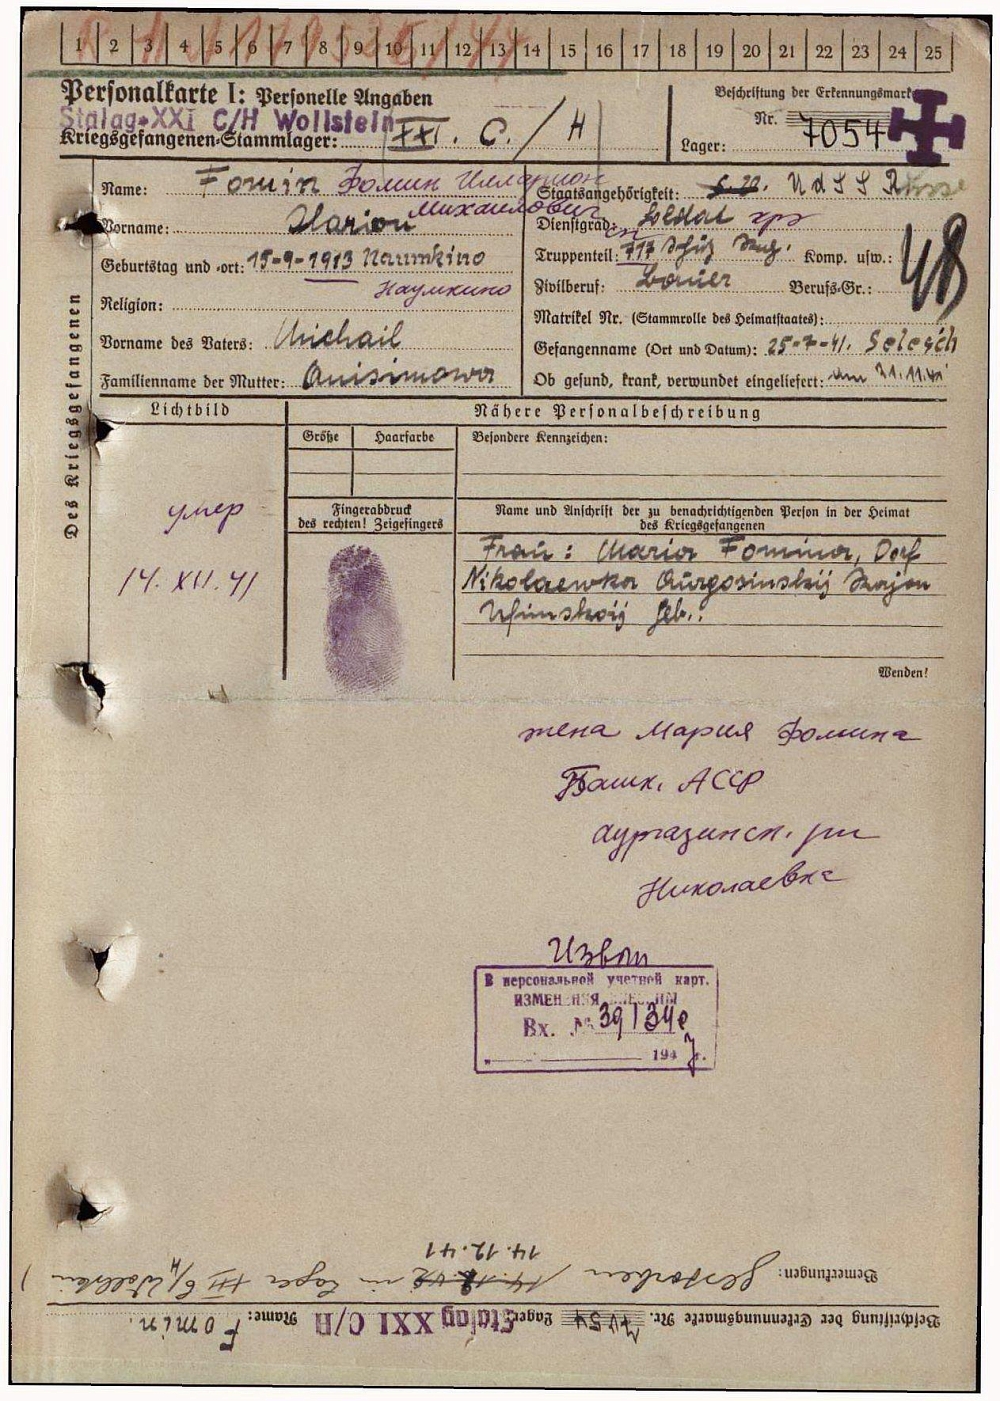 1 2 3 4 5 6 7 8 9 10 11 12 13 14 15 16 17 18 19 20 21 22 23 24 25
Personalkarte I: Personelle Angaben
Stalag XXI C/H Wollstein
Kriegsgefangenen-Stammlager: XXI. C. / H
Beschriftung der Erkennungsmarke
Nr. 7054
Lager:
Des Kriegsgefangenen
Name: Fomin Фомин Илларион
Михаилович
Vorname: Ilarion
Geburtstag und -ort: 15-9-1913 Naumkino
Наумкино
Religion:
Vorname des Vaters: Michail
Familienname der Mutter: Anisimowa
Staatsangehörigkeit: U d S S R Russe
Dienstgrad: Soldat
Truppenteil: 717 Schütz Komp. usw.:
сп
48
Zivilberuf: Bauer Berufs-Gr.:
Matrikel Nr. (Stammrolle des Heimatstaates):
Gefangennahme (Ort und Datum): 25-7-41.
Ob gesund, krank, verwundet eingeliefert: 21.11.41
Lichtbild
Nähere Personalbeschreibung
Größe Haarfarbe Besondere Kennzeichen:
умер
14. XII. 41
Fingerabdruck
des rechten! Zeigefingers
Name und Anschrift der zu benachrichtigenden Person in der Heimat
des Kriegsgefangenen
Frau: Maria Fomina, Dorf
Nikolaewka Aurgasinskij Rajon
Ufimskoij Geb.:
Wenden!
жена Мария Фомина
Башк. АССР
аургазинск. рн
Николаевка
Извещ
В персональной учетной карт.
ИЗМЕНЕНИЯ ВНЕСЕНЫ
Вх. № 39134е
1947 г.
Bemerkungen: Gestorben 14.12.41 im Lager XXI C/H Wollstein
Beschriftung der Erkennungsmarke Nr. 7054 Lager: Stalag XXI C/H Name: Fomin.